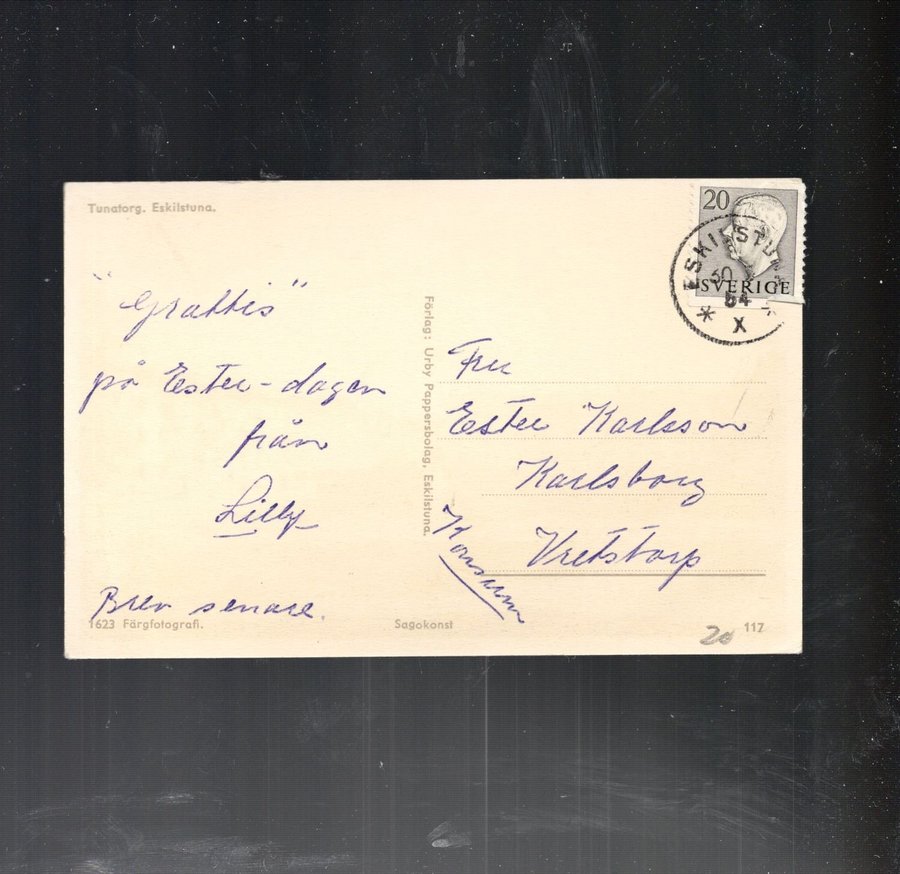 Tunatorg. Eskilstuna.
"Grattis"
på Ester-dagen
från
Lilly
Brev senare.
1623 Färgfotografi.
Förlag: Urby Pappersbolag, Eskilstuna.
Sagokonst
20
SVERIGE
ESKILSTUNA
54
X
Fru
Ester Karlsson
Karlsborg
Vretstorp
Konsum
20
117